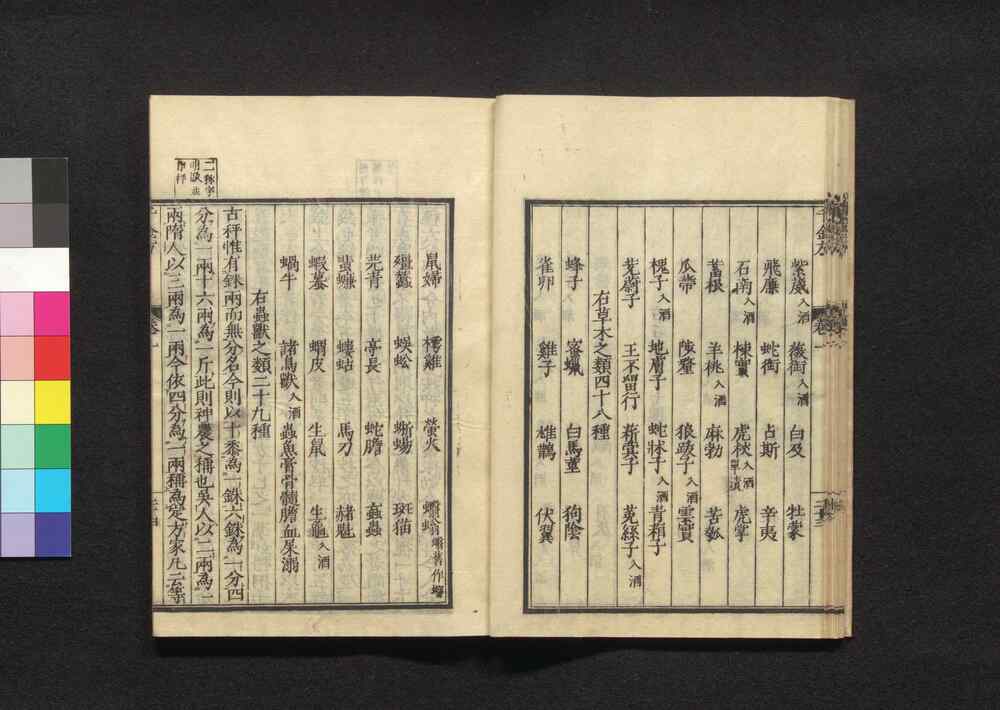 紫葳入酒 薇銜入酒 白及 牡蒙
飛廉 蛇銜 占斯 辛夷
石南入酒 楝實 虎杖入酒單漬 虎掌
蓄根 羊桃入酒 麻勃 苦瓠
瓜蔕 陟釐 狼跋子入酒 雲實
槐子入酒 地膚子 蛇牀子入酒 青葙子
茺蔚子 王不留行 菥蓂子 菟絲子入酒
右草木之類四十八種
蜂子入酒 蜜蠟 白馬莖 狗陰
雀卵 雞子 雄鵲 伏翼
鼠婦 樗雞 螢火 蠮螉
殭蠶 蜈蚣 蜥蜴 斑猫
芫青 亭長 蛇膽 蝱蟲
蜚蠊 螻蛄 馬刀 赭魁
蝦蟇 蝟皮 生鼠 生龜入酒
蝸牛 諸鳥獸入酒 蟲魚膏骨髓膽血屎溺
右蟲獸之類二十九種
古秤惟有銖兩而無分名今則以十黍為一銖六銖為一分四
分為一兩十六兩為一斤此則神農之稱也吳人以二兩為一
兩隋人以三兩為一兩今依四分為一兩稱為定方家凡云等